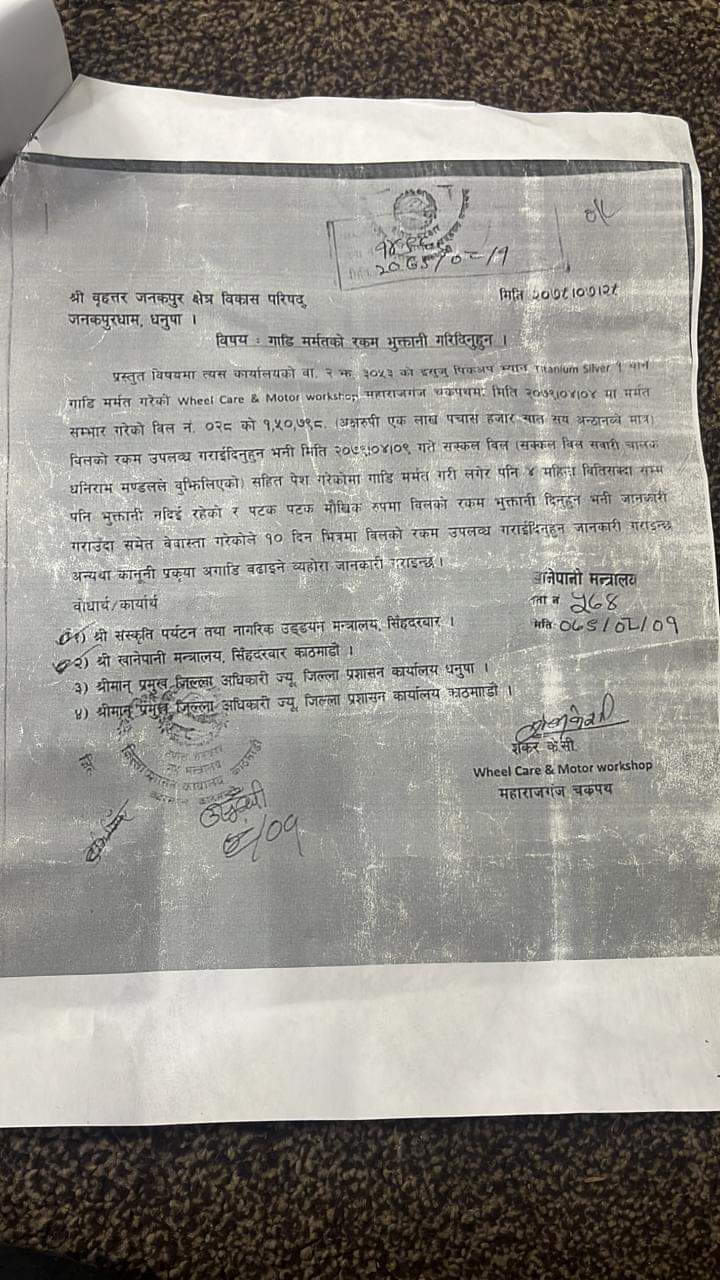 श्री वृहत्तर जनकपुर क्षेत्र विकास परिषद्
मिति
जनकपुरधाम, धनुषा ।
विषय : गाडि मर्मतको रकम भुक्तानी गरिदिनुहुन ।
प्रस्तुत विषयमा त्यस कार्यालयको वा. २ झ ३०५३ को इसुजु पिकअप भ्यान Titanium Silver १ थान
गाडि मर्मत गरेको Wheel Care & Motor workshop महाराजगंज चक्रपथमा मिति २०७९।०४।०४ मा मर्मत
सम्भार गरेको विल नं. ०२८ को १,५०,७९८. (अक्षरुपी एक लाख पचास हजार सात सय अन्ठानब्बे मात्र)
विलको रकम उपलव्ध गराईदिनुहुन भनी मिति २०७९।०४।०९ गते सक्कल विल (सक्कल विल सवारी चालक
धनिराम मण्डलले वुझिलिएको) सहित पेश गरेकोमा गाडि मर्मत गरी लगेर पनि ४ महिना वितिसक्दा सम्म
पनि भुक्तानी नदिई रहेको र पटक पटक मौखिक रुपमा विलको रकम भुक्तानी दिनुहुन भनी जानकारी
गराउदा समेत वेवास्ता गरेकोले १० दिन भित्रमा विलको रकम उपलव्ध गराईदिनुहुन जानकारी गराइन्छ
अन्यथा कानूनी प्रकृया अगाडि वढाइने व्यहोरा जानकारी गराइन्छ ।
खानेपानी मन्त्रालय
वोधार्थ/कार्यार्थ
१) श्री संस्कृति पर्यटन तथा नागरिक उड्डयन मन्त्रालय, सिंहदरवार ।
२) श्री खानेपानी मन्त्रालय, सिंहदरवार काठमाडौ ।
३) श्रीमान् प्रमुख जिल्ला अधिकारी ज्यू, जिल्ला प्रशासन कार्यालय धनुषा ।
४) श्रीमान् प्रमुख जिल्ला अधिकारी ज्यू, जिल्ला प्रशासन कार्यालय काठमााडौ ।
शंकर के.सी.
Wheel Care & Motor workshop
महाराजगंज चक्रपथ